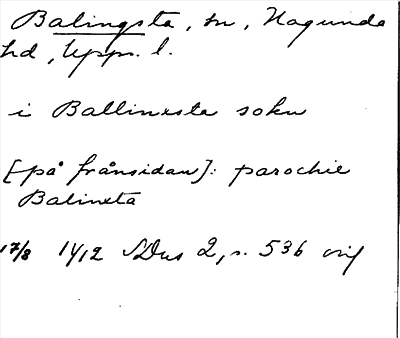 Balingsta, sn, Hagunda
hd, Upps. l.
i Ballinxsta sokn
[på frånsidan]: parochie
Balinxta
17/8 1412 SDns 2, s. 536 orig